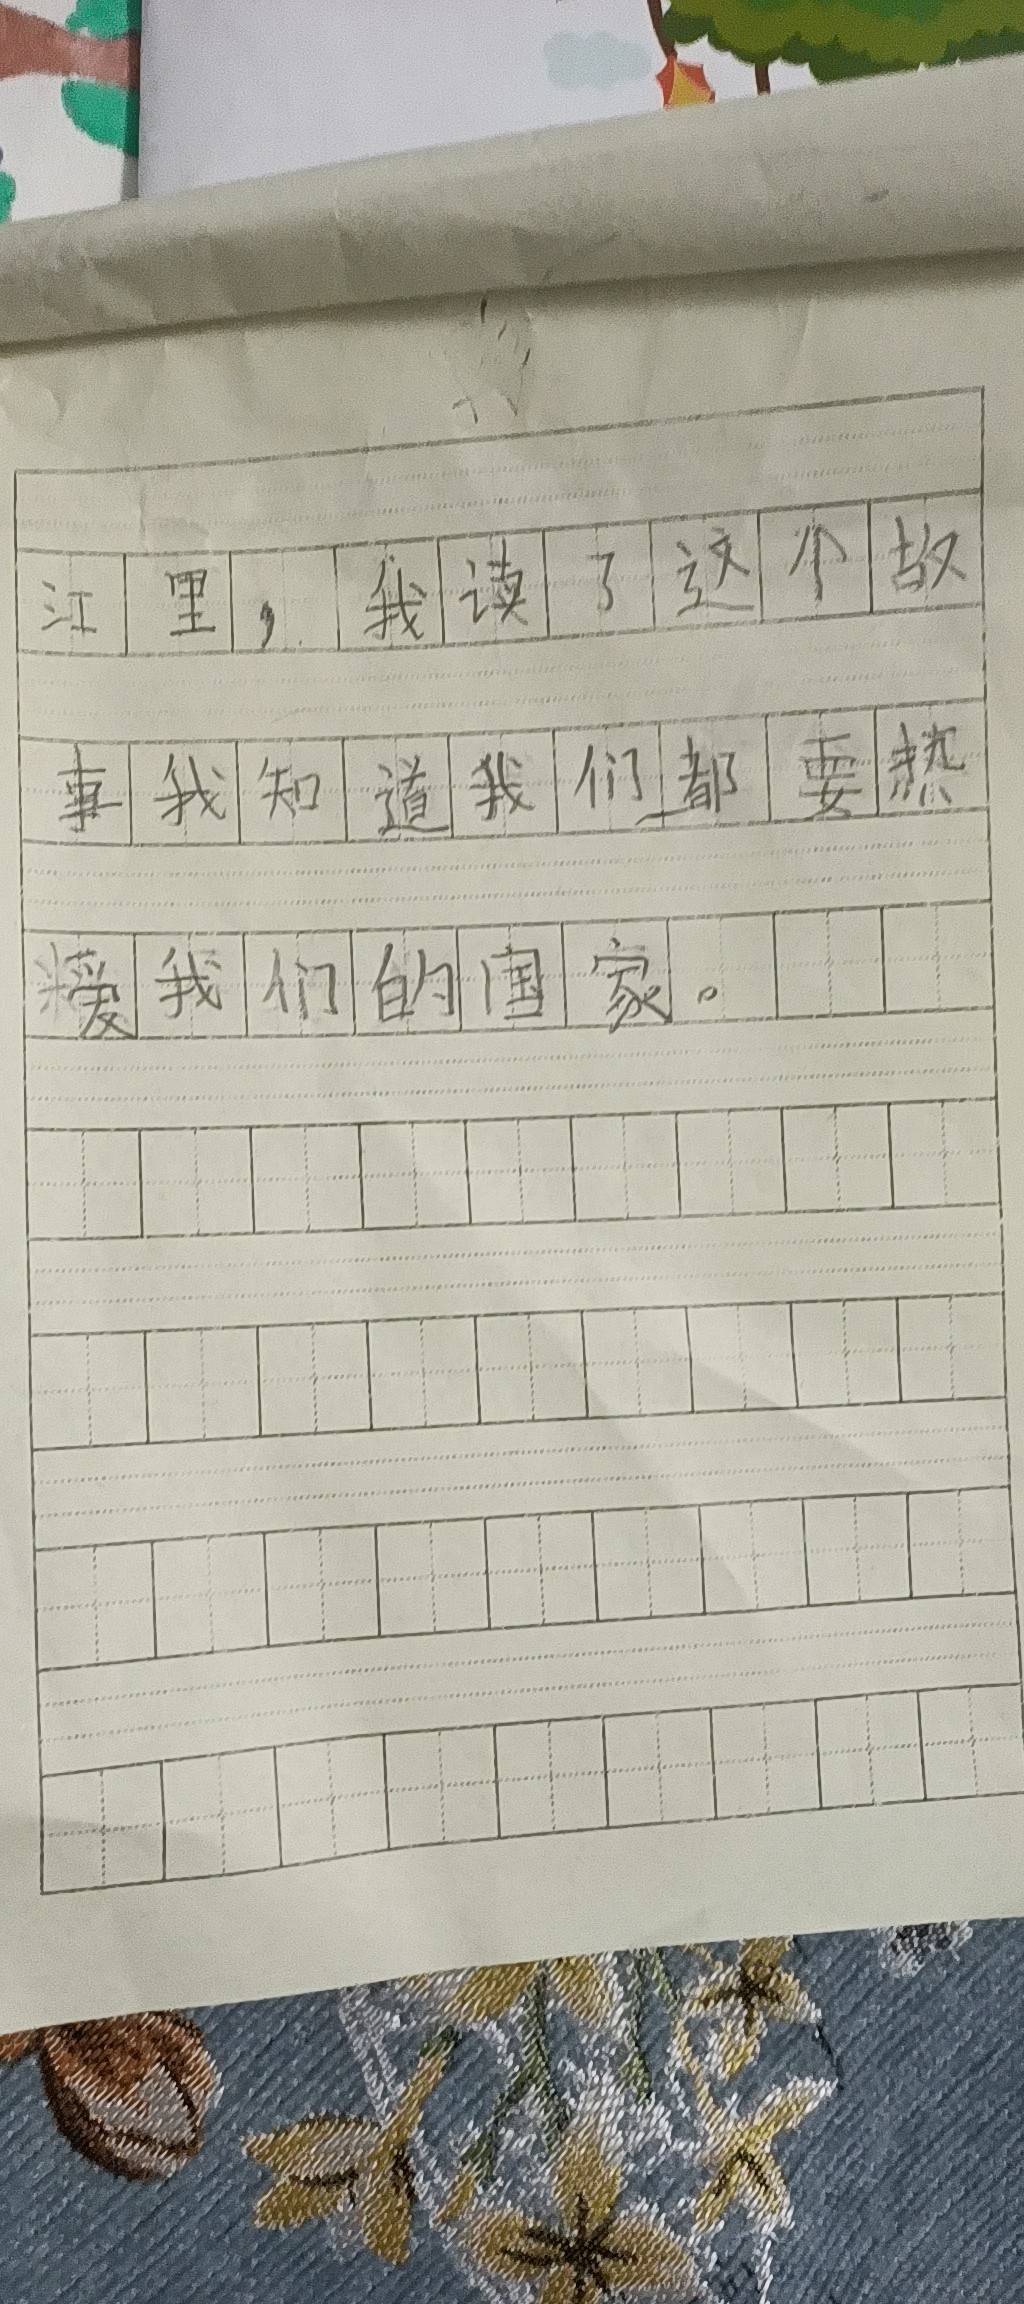 江里，我读了这个故
事我知道我们都要热
爱我们的国家。